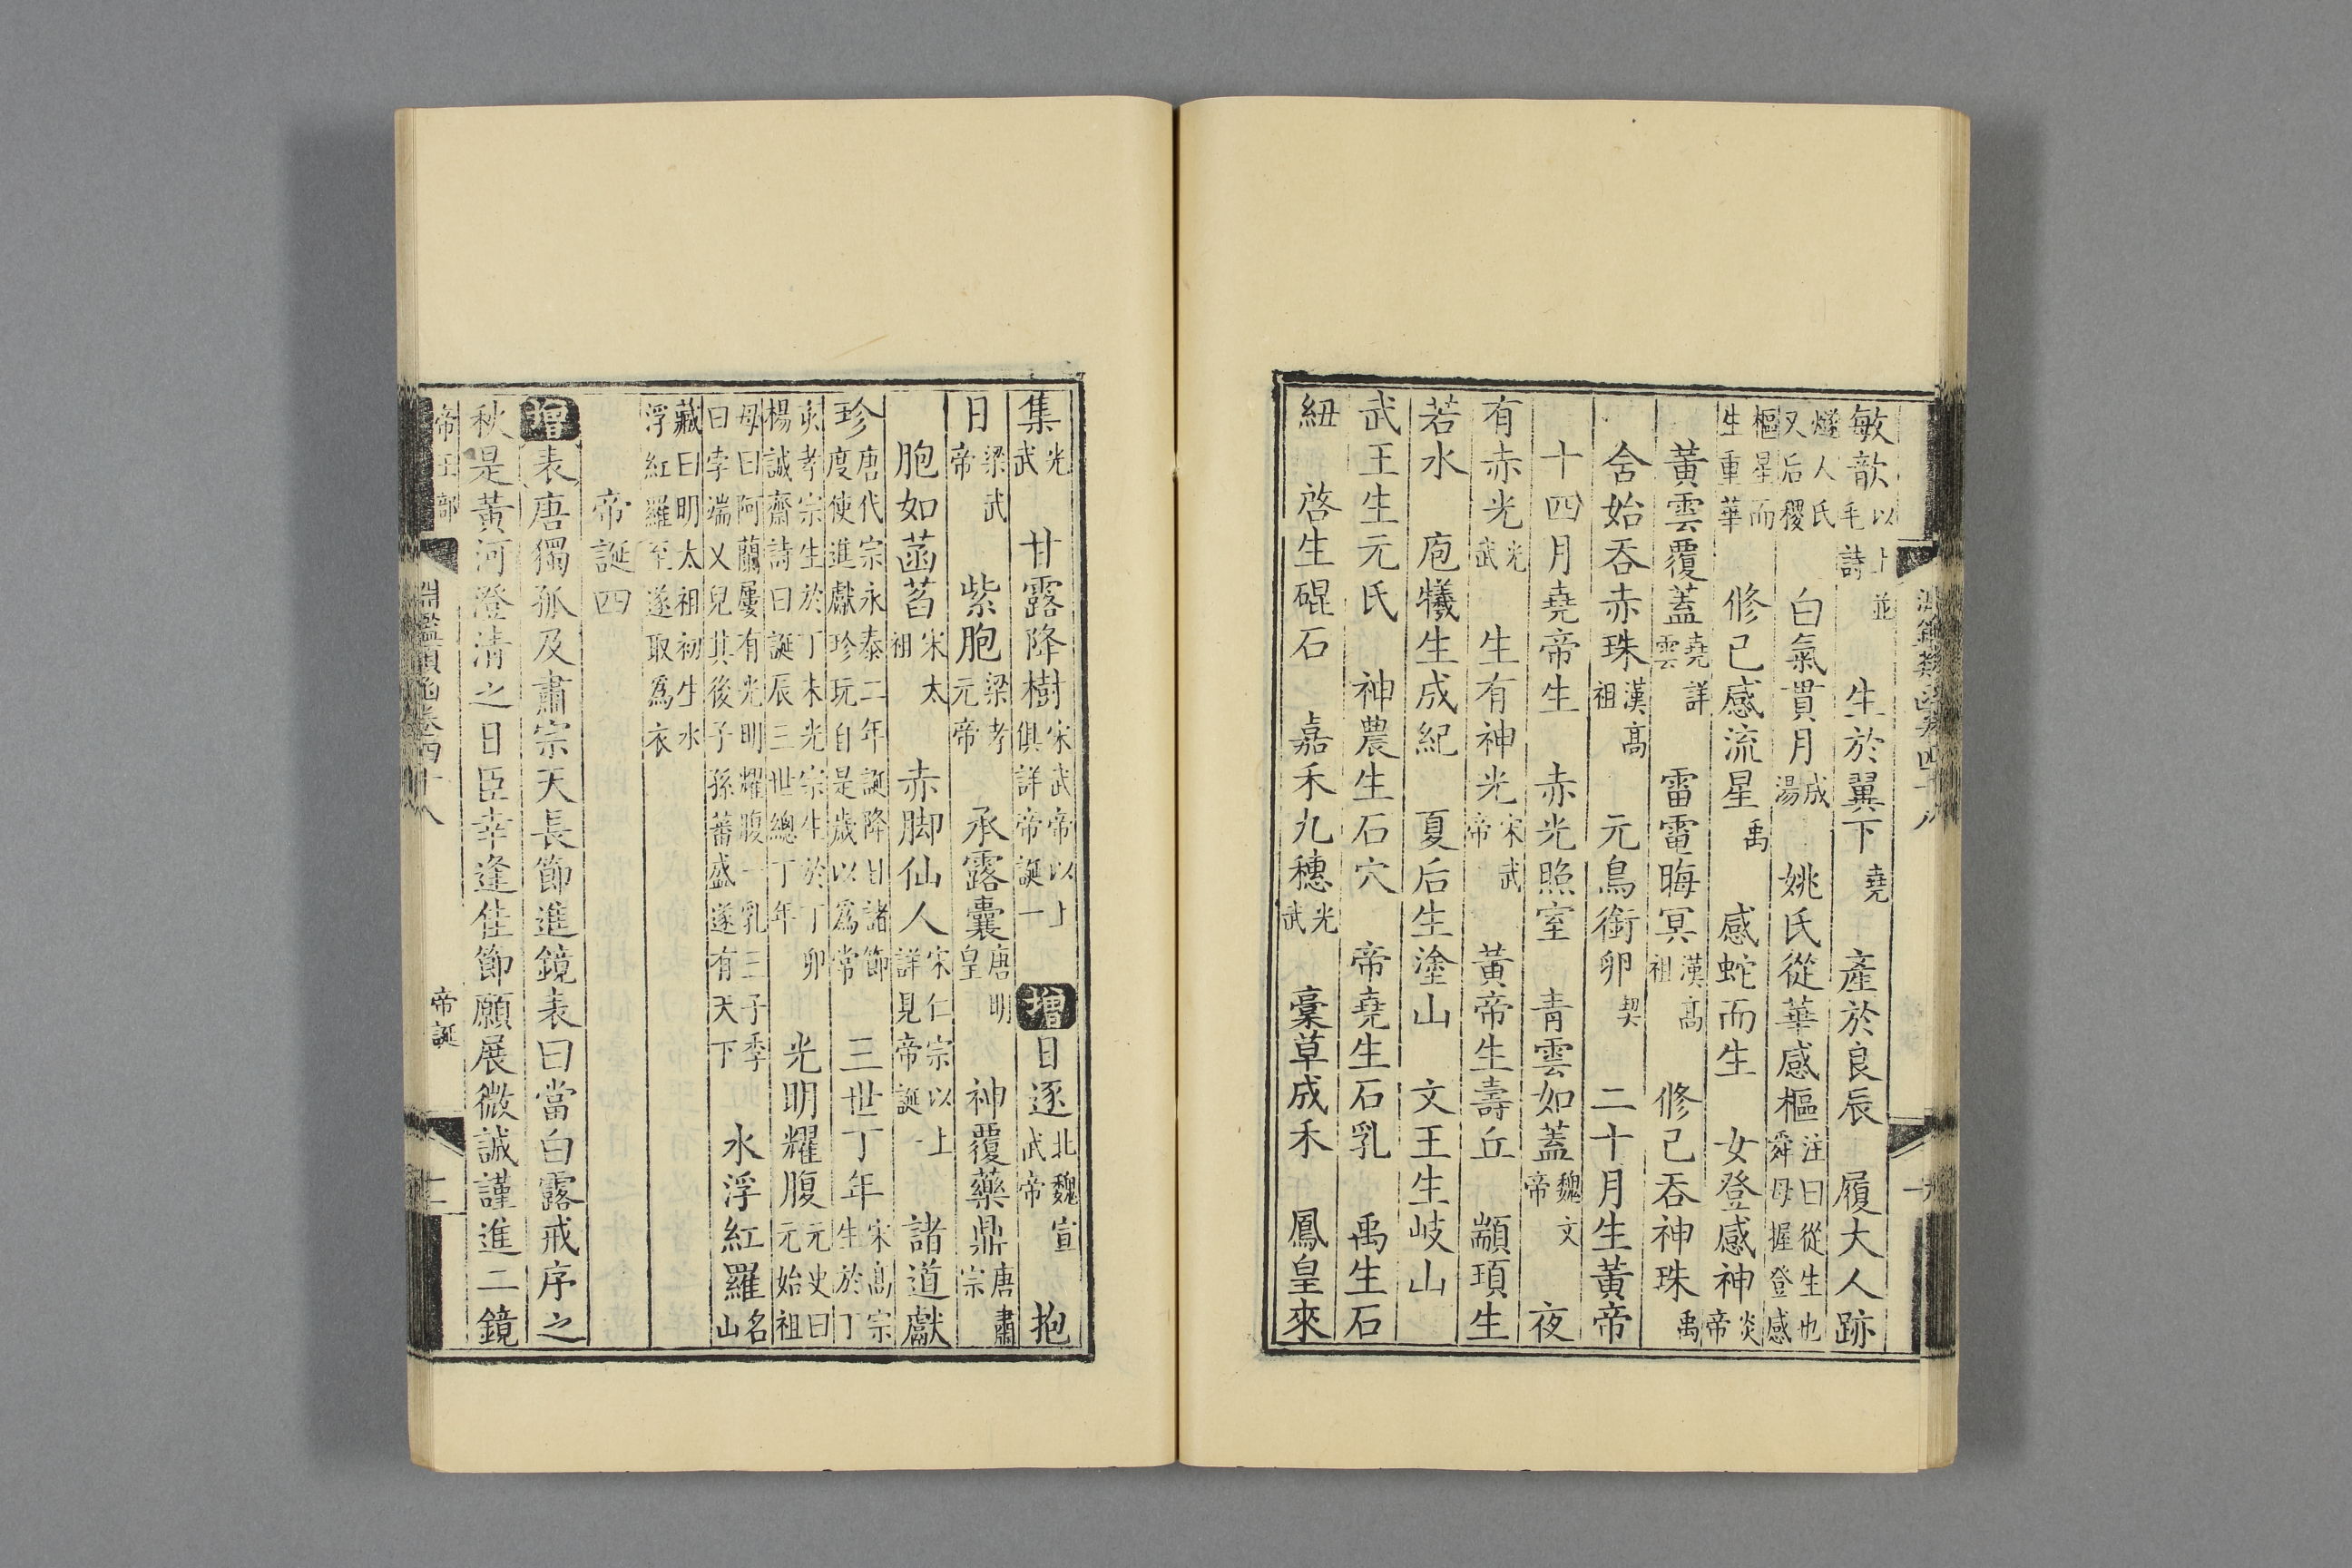 敏歆以上並毛詩 生於翼下堯 產於良辰 履大人跡
燧人氏又后稷 白氣貫月成湯 姚氏從華感樞注曰從生也舜母握登感
樞星而生重華 修己感流星禹 感蛇而生 女登感神炎帝
黃雲覆蓋堯詳雲 雷電晦冥漢高祖 修己吞神珠禹
含始吞赤珠漢高祖 元鳥銜卵契 二十月生黃帝
十四月堯帝生 赤光照室 青雲如蓋魏文帝 夜
有赤光光武 生有神光宋武帝 黃帝生壽丘 顓頊生
若水 庖犧生成紀 夏后生塗山 文王生岐山
武王生元氏 神農生石穴 帝堯生石乳 禹生石
紐 啓生硍石 嘉禾九穗光武 稾草成禾 鳳皇來
集光武 甘露降樹宋武帝以上俱詳帝誕一 增日逐北魏宣武帝 抱
日梁武帝 紫胞梁孝元帝 承露囊唐明皇 神覆藥鼎唐肅宗
胞如菡萏宋太祖 赤脚仙人宋仁宗以上詳見帝誕一 諸道獻
珍唐代宗永泰二年誕降日諸節度使進獻珍玩自是歲以爲常 三世丁年宋高宗生於丁
亥孝宗生於丁未光宗生於丁卯楊誠齋詩曰誕辰三世總丁年 光明耀腹元史曰元始祖
母曰阿蘭屢有光明耀腹一乳三子季曰孛端叉兒其後子孫蕃盛遂有天下 水浮紅羅名山
藏曰明太祖初生水浮紅羅至遂取爲衣
帝誕四
增表唐獨孤及肅宗天長節進鏡表曰當白露戒序之
秋是黃河澄清之日臣幸逢佳節願展微誠謹進二鏡
帝王部 淵鑑類函卷四十八 帝誕 二